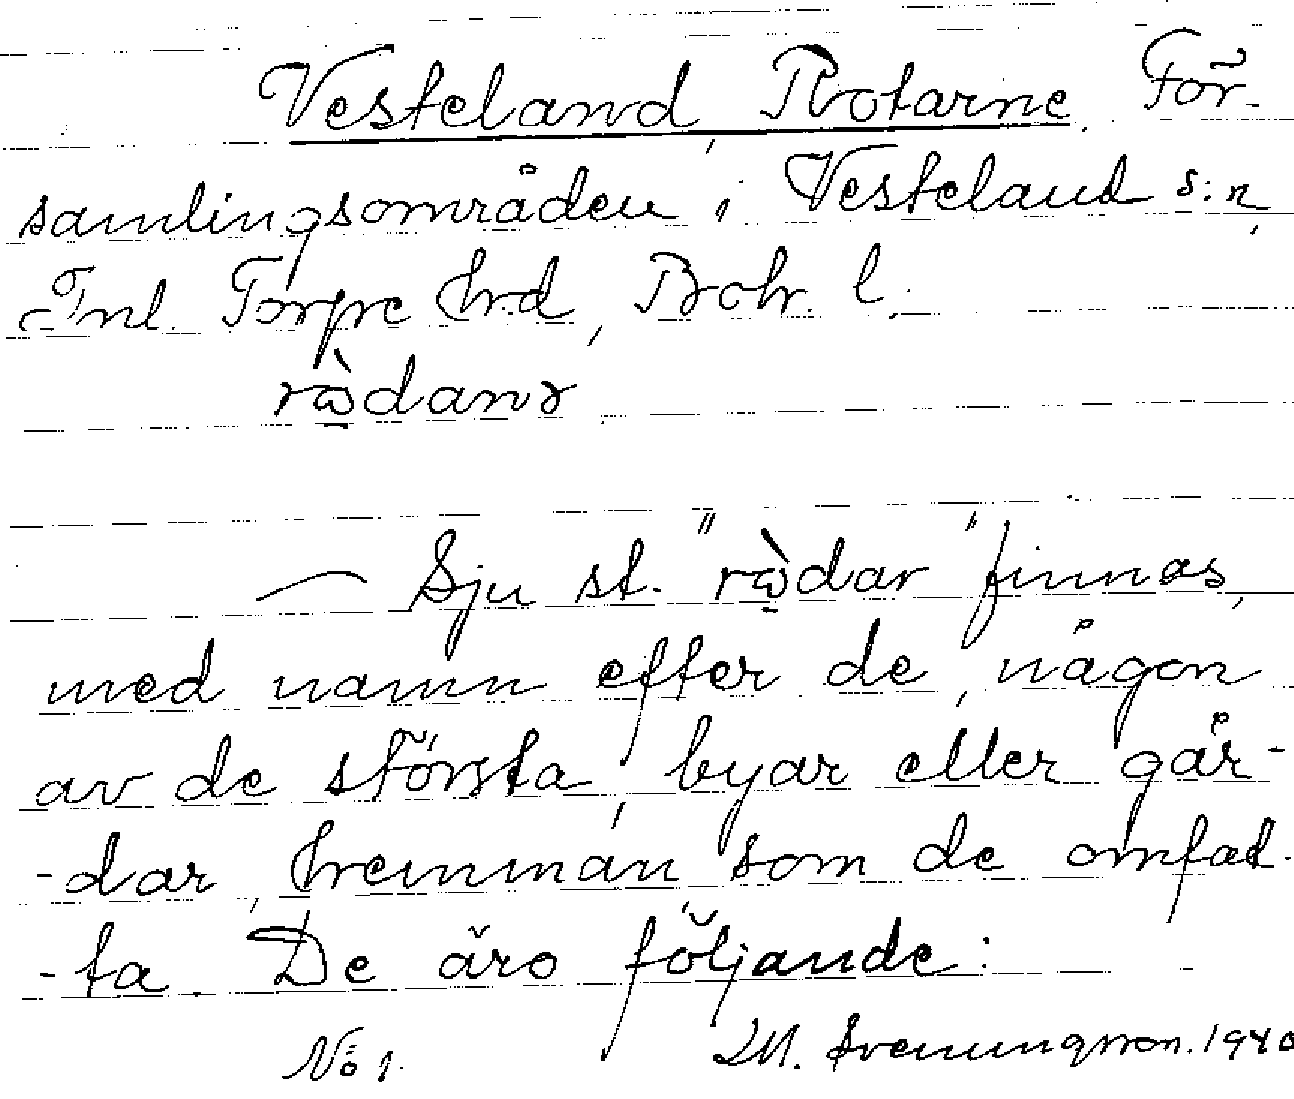 Vesteland, Rotarne. För-
samlingsområden, i Vesteland s:n,
Inl. Torpe hrd, Boh. l.
rɷ̀danɤ
Sju st. "rɷ̀dar" finnas,
med namn efter de, någon
av de största, byar eller går-
-dar, hemman, som de omfat-
-ta. De äro följande:
No 1. M. Svenungsson. 1940